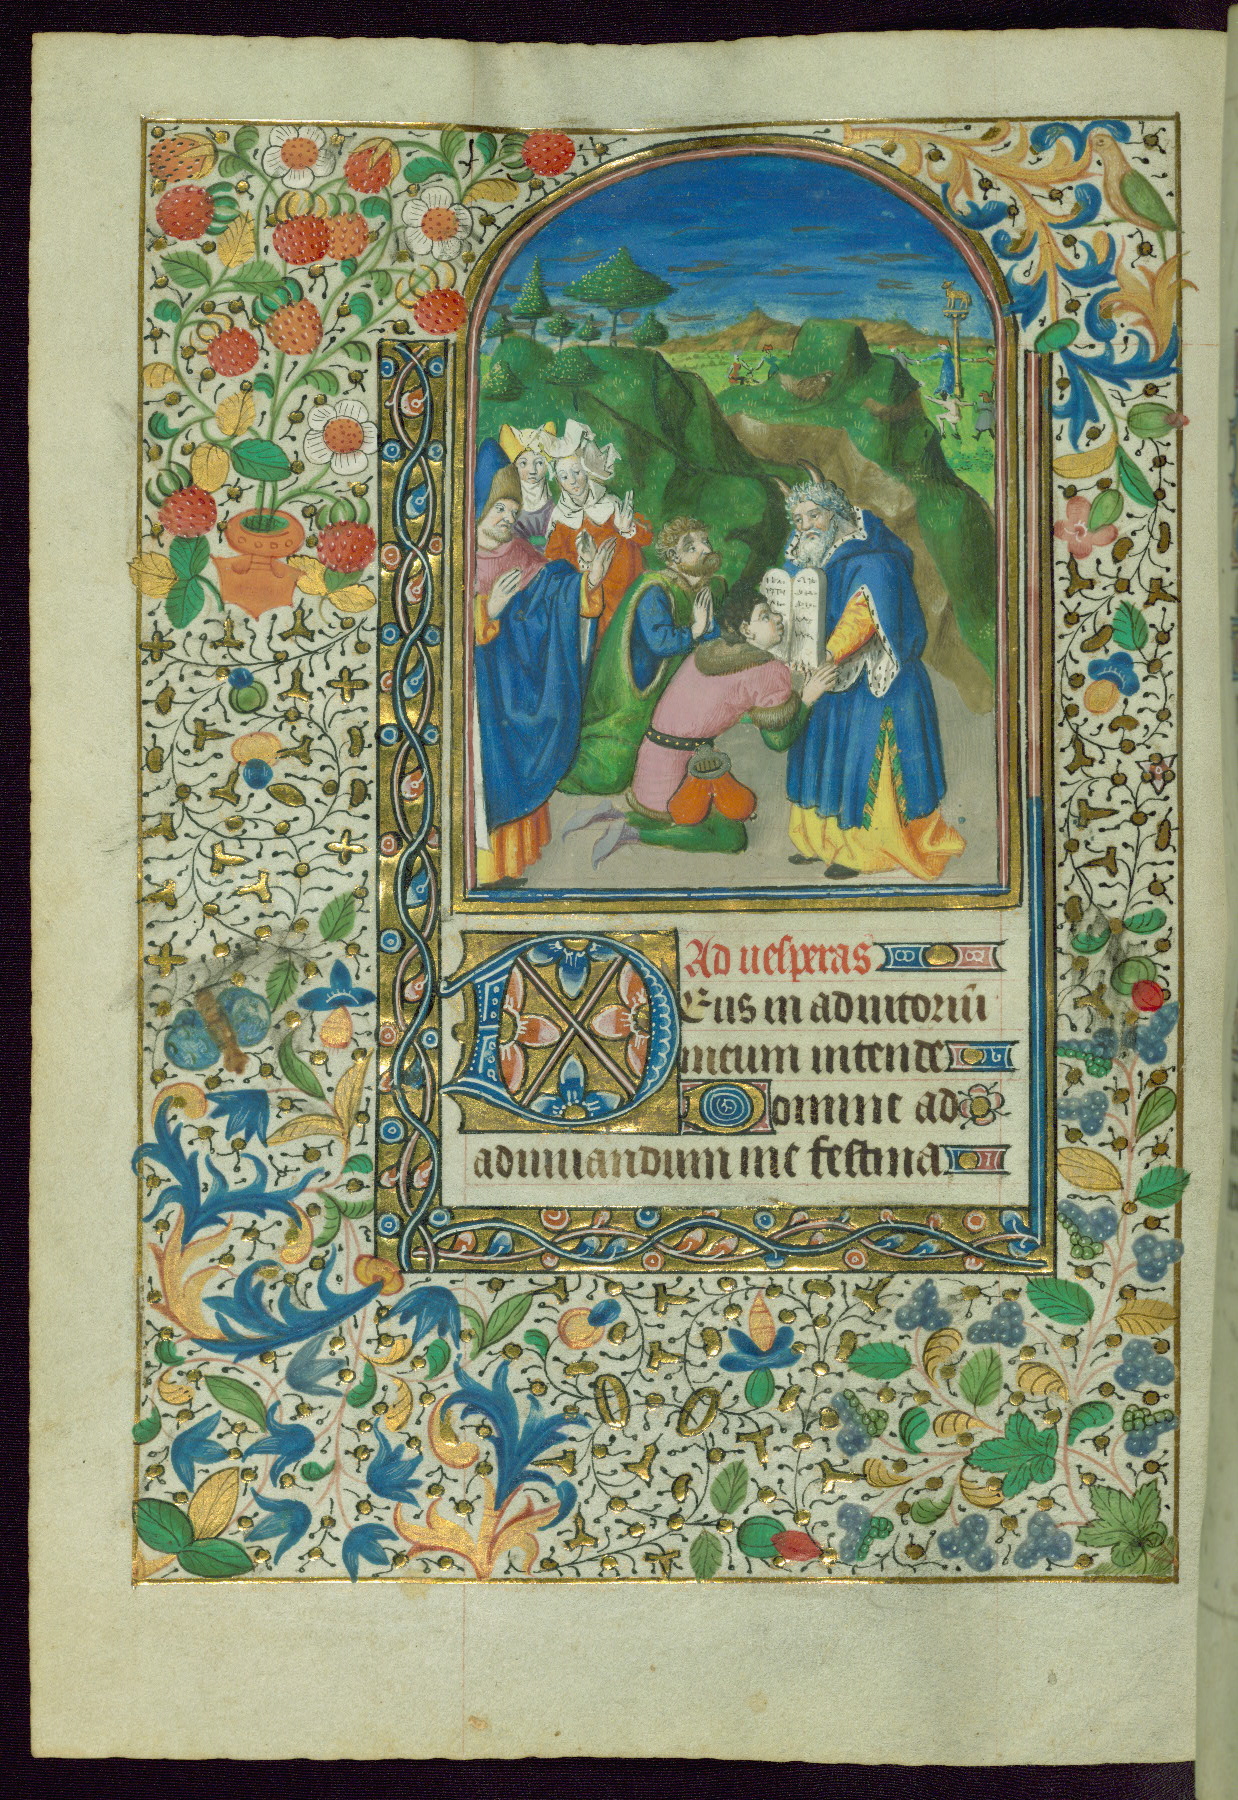 Ad uesperas
Deus in adiutoriū
meum intende
Domine ad
adiuuandum me festina